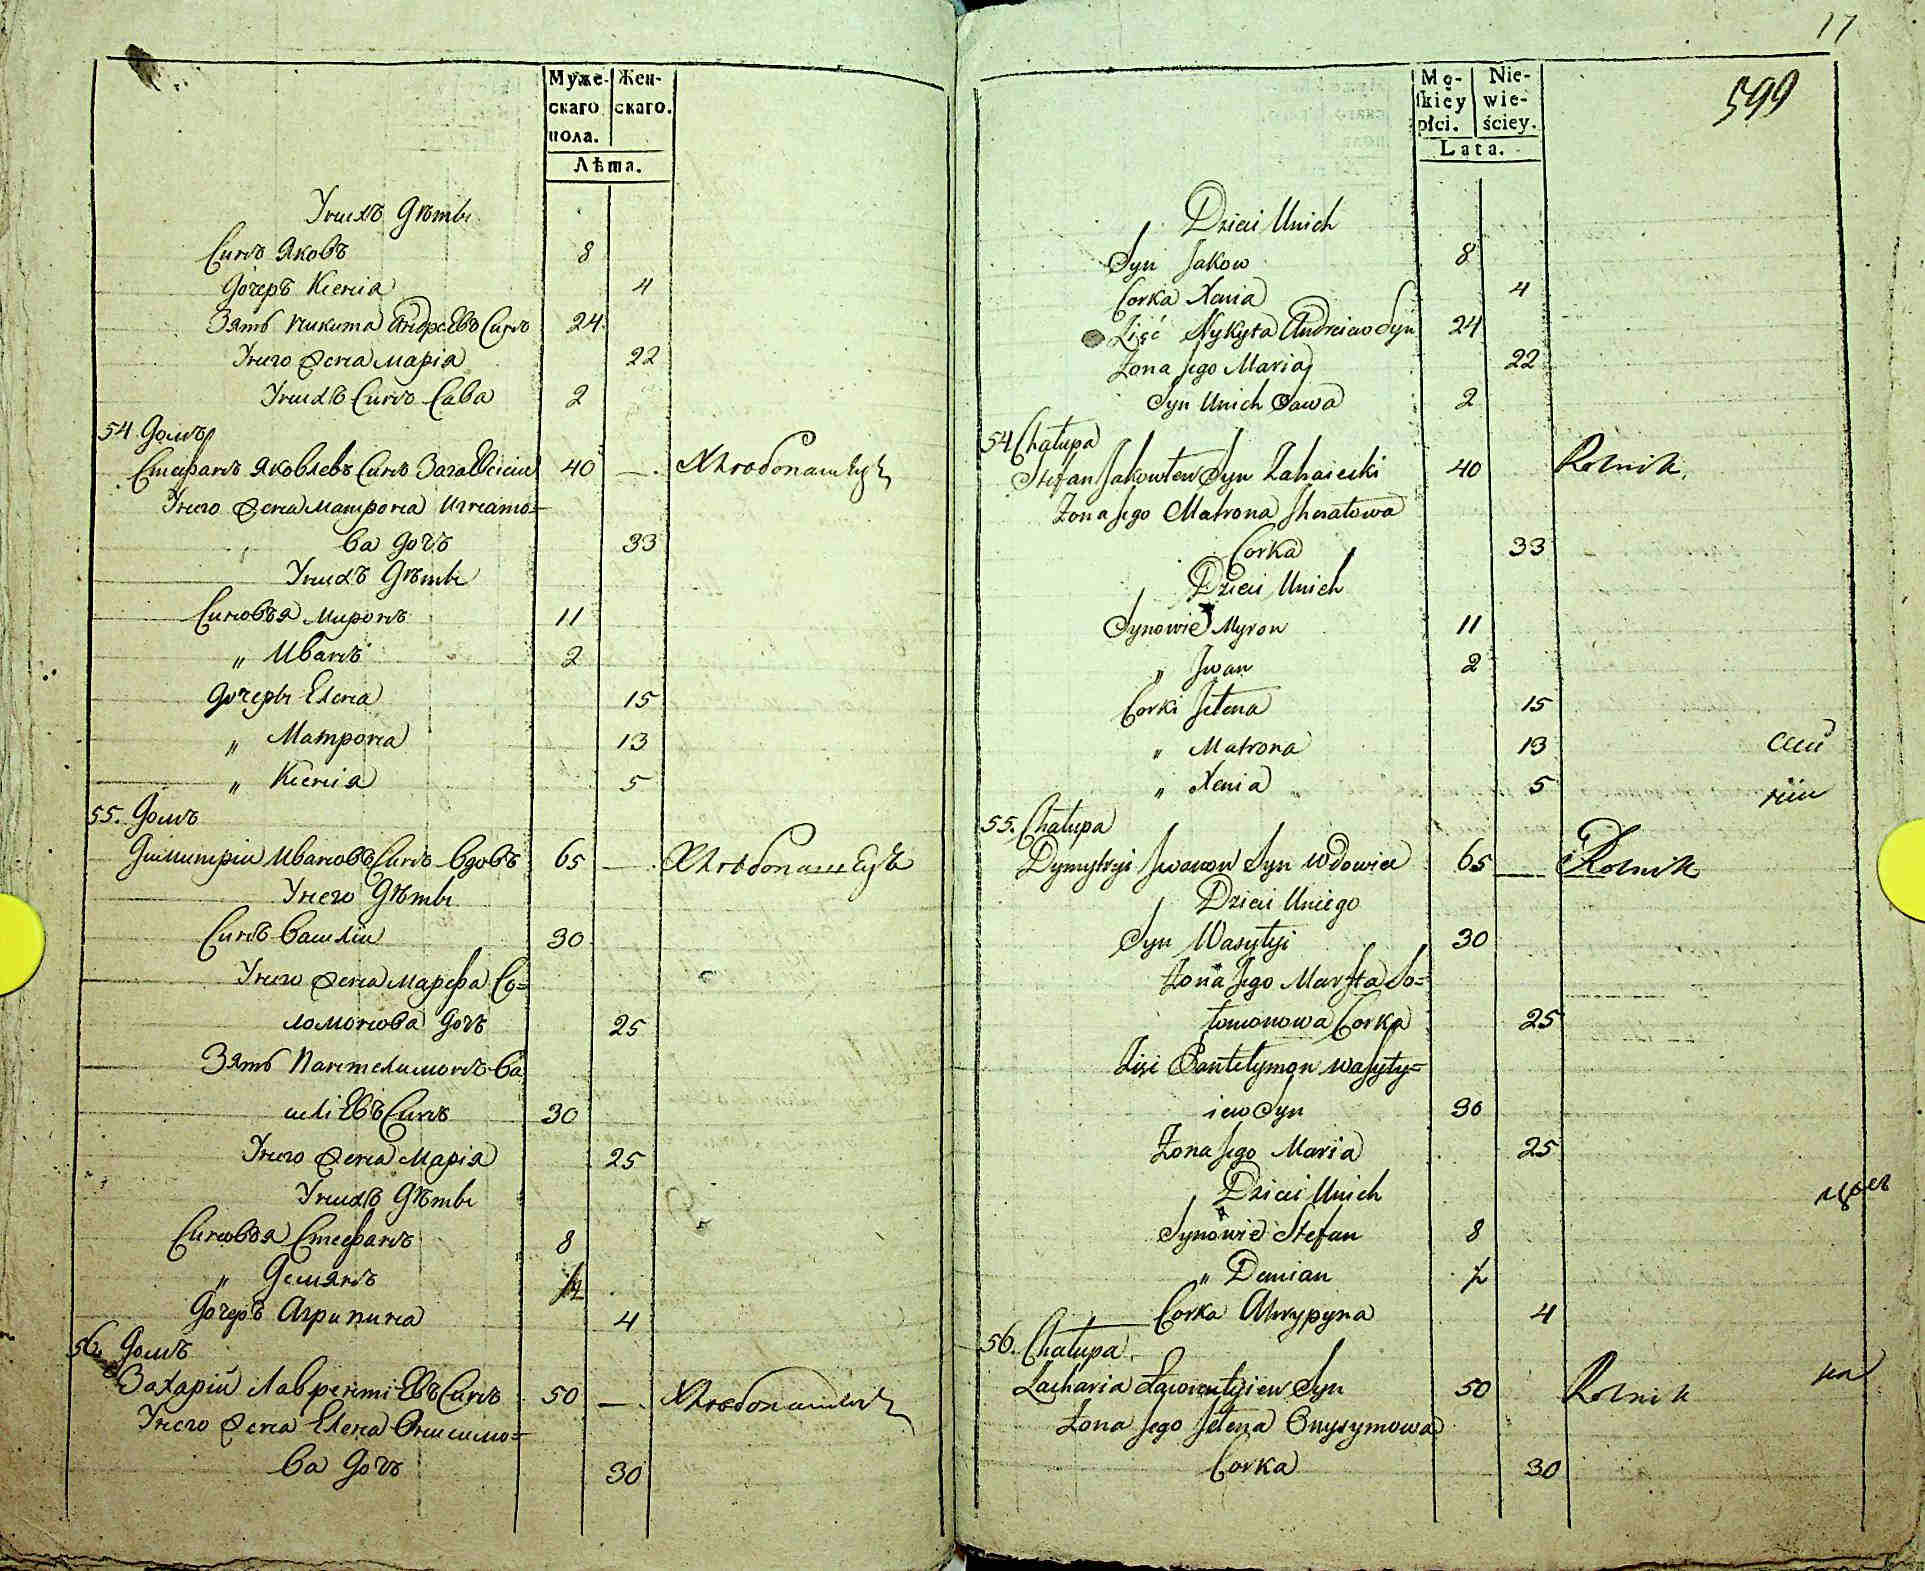 Муже-
скаго
пола.
Жен-
скаго.
Лѣта.
У нихъ Дѣти
Синъ Яковъ 8
Дочеръ Ксенія 4
Зять Никита Андрѣевъ Синъ 24
У него Жена Марія 22
У нихъ Синъ Сава 2
54 Домъ
Стефанъ Яковлевъ Синъ 40 —. Хлѣбопашецъ
У него Жена Матрона Игнато=
ва Дочъ 33
У нихъ Дѣти
Синовья Миронъ 11
„ Иванъ 2
Дочери Елена 15
„ Матрона 13
„ Ксенія 5
55. Домъ
Димитрій Ивановъ Синъ Вдовъ 65 —. Хлѣбопашецъ
У него Дѣти
Синъ Василій 30
У него Жена Марфа Со=
ломонова Дочъ 25
Зять Пантелимонъ Ва
силіевъ Синъ 30
У него Жена Марія 25
У нихъ Дѣти
Синовья Стефанъ 8
„ Демянъ
Дочеръ Агрипина 4
56. Домъ
Захарій Лаврентіевъ Синъ 50 —. Хлѣбопашецъ
У него Жена Елена Онисимо=
ва Дочъ 30
17
599
Mę-
skiey
płci.
Nie-
wie-
ściey.
Lata.
Dzieci Unich
Syn Jakow 8
Corka Xenia 4
Zięć Nykyta Andreiew Syn 24
Żona Jego Maria 22
Syn Unich Sawa 2
54 Chałupa
Stefan Jakowlew Syn Zahaiecki 40 Rolnik.
Żona Jego Matrona Jhnatowa
Corka 33
Dzieci Unich
Synowie Myron 11
„ Jwan 2
Corki Jełena 15
„ Matrona 13
„ Xenia 5
55. Chałupa
Dymytryi Jwanow Syn Wdowiec 65 — Rolnik
Dzieci Uniego
Syn Wasyłyi 30
Żona Jego Marfta So=
łomonowa Corka 25
Zięć Pantełymon Wasyły=
iew Syn 30
Żona Jego Maria 25
Dzieci Unich
Synowie Stefan 8
„ Demian 7
Corka Ahrypyna 4
56. Chałupa
Zacharia Ławrentyiew Syn 50 Rolnik
Żona Jego Jełena Onysymowa
Corka 30